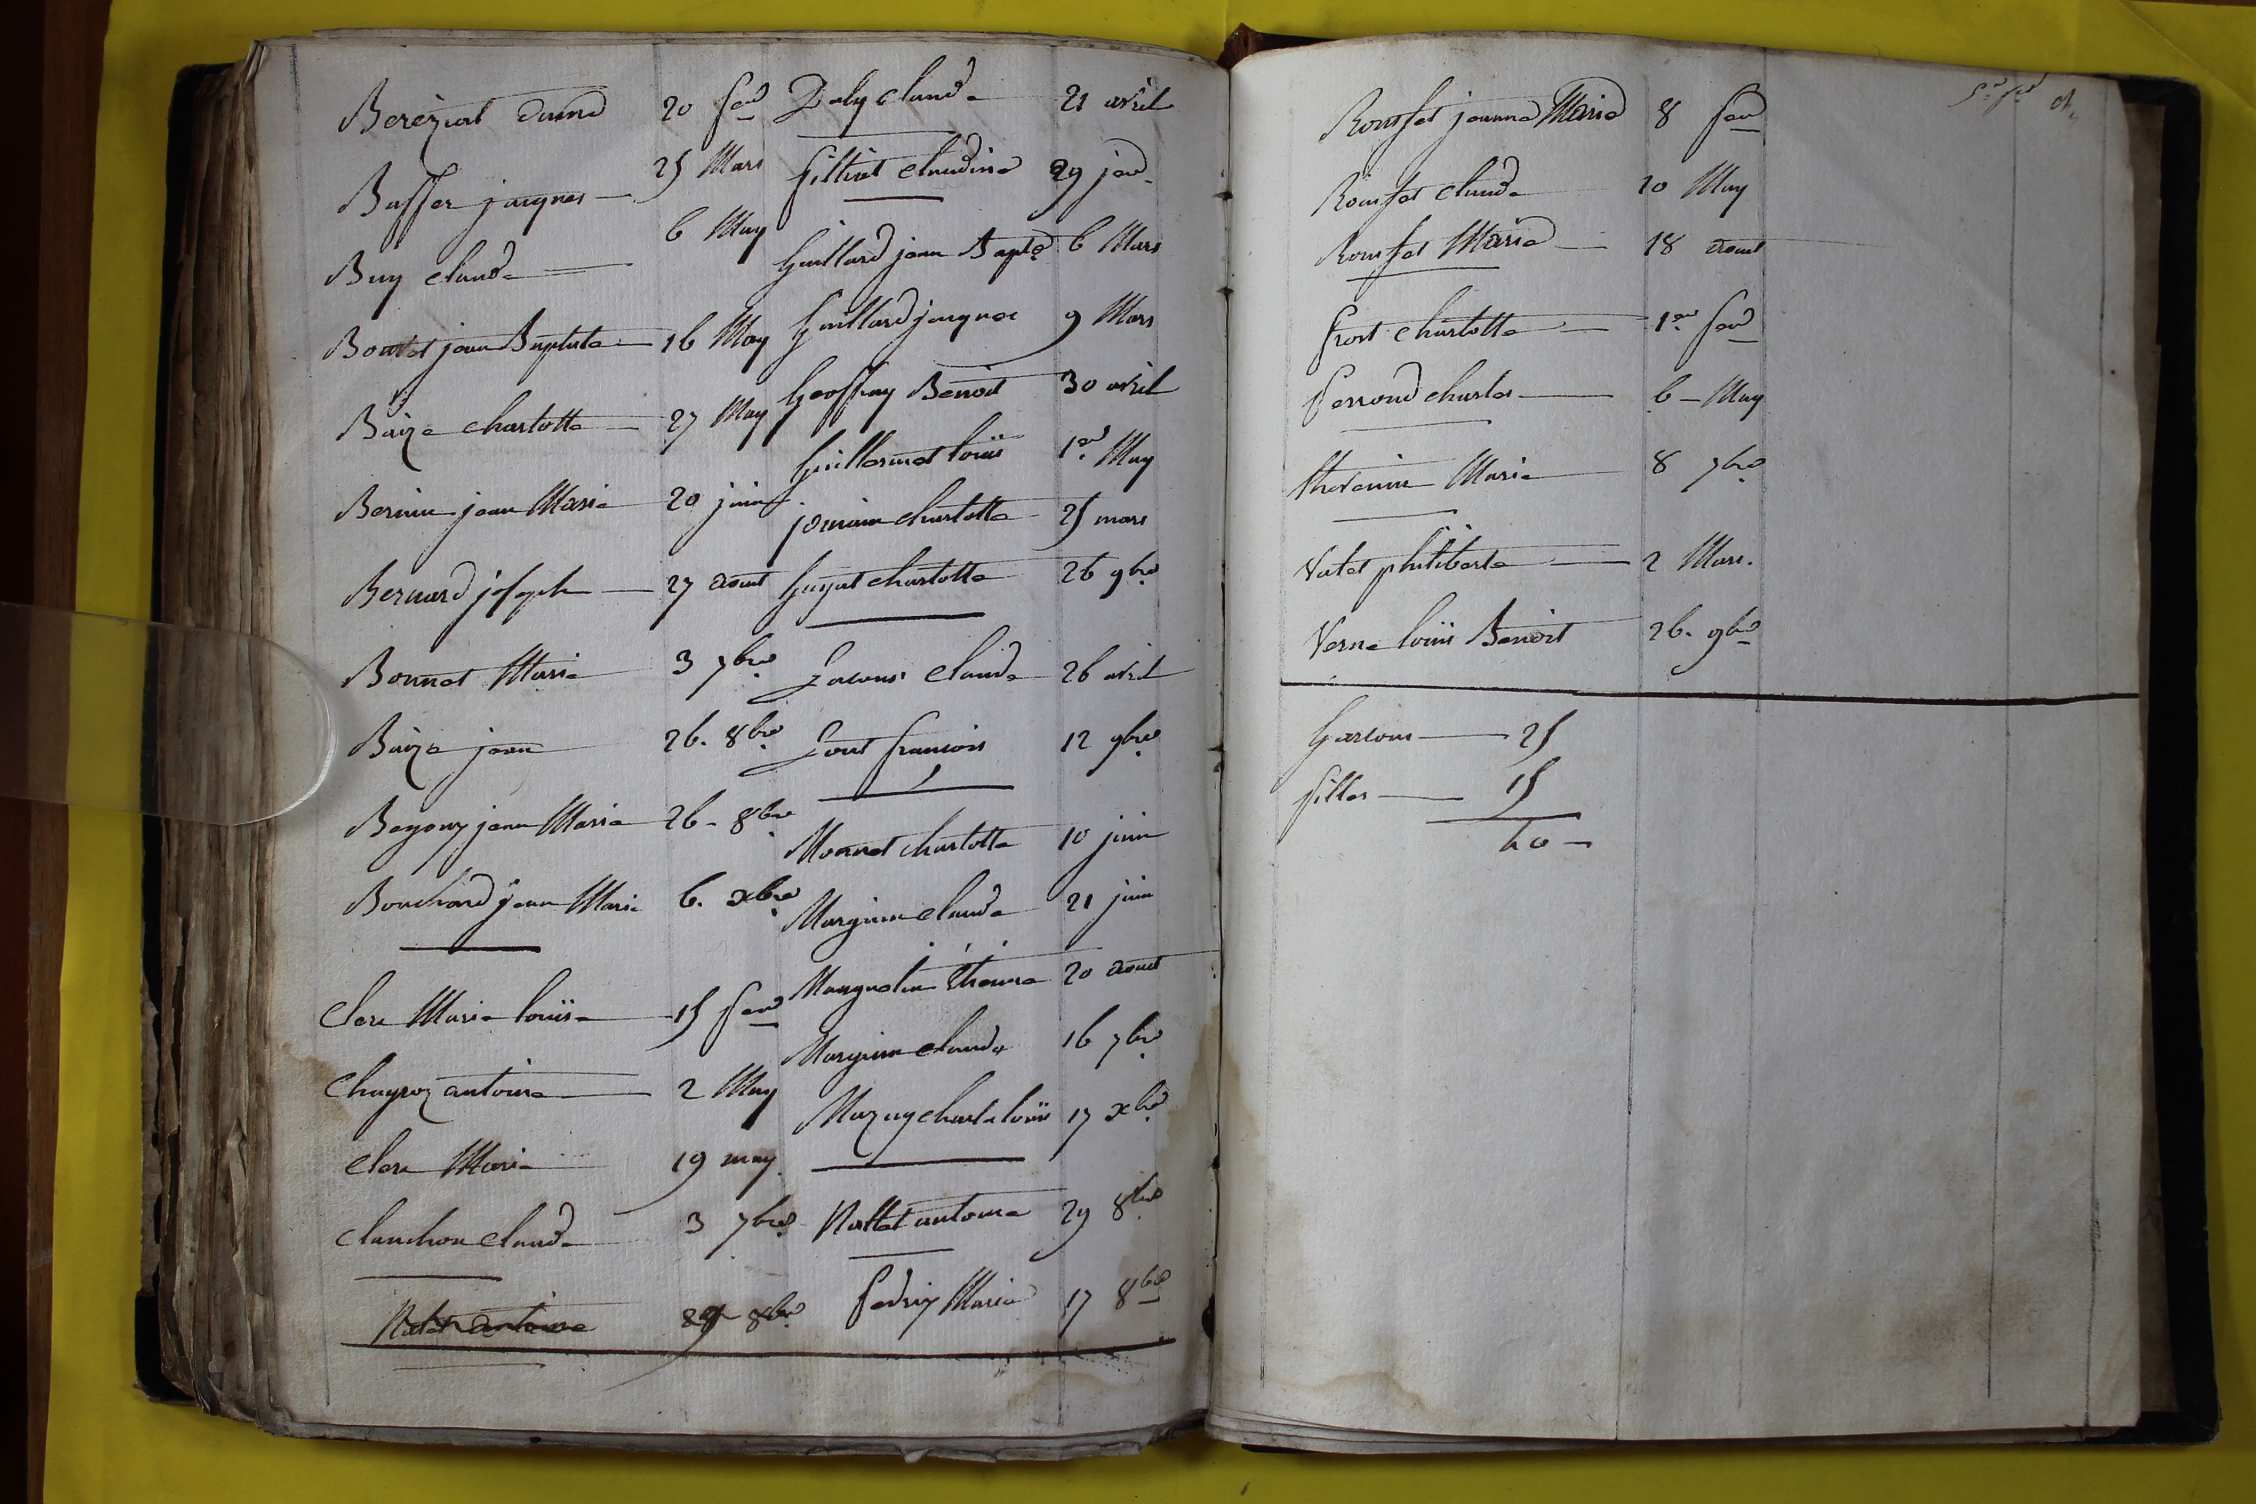 Berezial 20 fev
Buffer jacques 25 Mars
Buy claude 6 May
Boulet jean Baptiste 16 May
Baize charlotte 27 May
Bernin jean Marie 20 juin
Bernard joseph 27 aout
Bonnet Marie 3 7bre
Baize jean 26. 8bre
Bagony jean Marie 26 - 8bre
Bouchard jean Marie 6. xbre
Clerc Marie louise 15 fev
Chayroz antoine 2 May
Clerc Marie 19 may
Clanchon claude 3 7bre
antoine 8bre
Daly claude 21 avril
filliat claudine 29 janv
Guillard jean Bapte 6 Mars
Guillard jacques 9 Mars
Geoffray Benoit 30 avril
Guillermet louis 1er May
jomain charlotte 25 mars
Guyat charlotte 26 9bre
claude 26 avril
francois 12 9bre
Monnet charlotte 10 juin
Marguin claude 21 juin
Manguelin Etienne 20 aout
Marguin claude 16 7bre
Mazuy charle louis 17 xbre
Nallet antoine 29 8bre
Pedrix Marie 17 8bre
jeanne Marie 8 fev
claude 20 May
Marie 18 aout
Prost charlotte 1er fev
Perroud charles 6 - May
thevenin Marie 8 7bre
Vatet philiberte 2 Mars.
Verne louis Benoit 26. 9bre
Garcons 25
filles 15
40